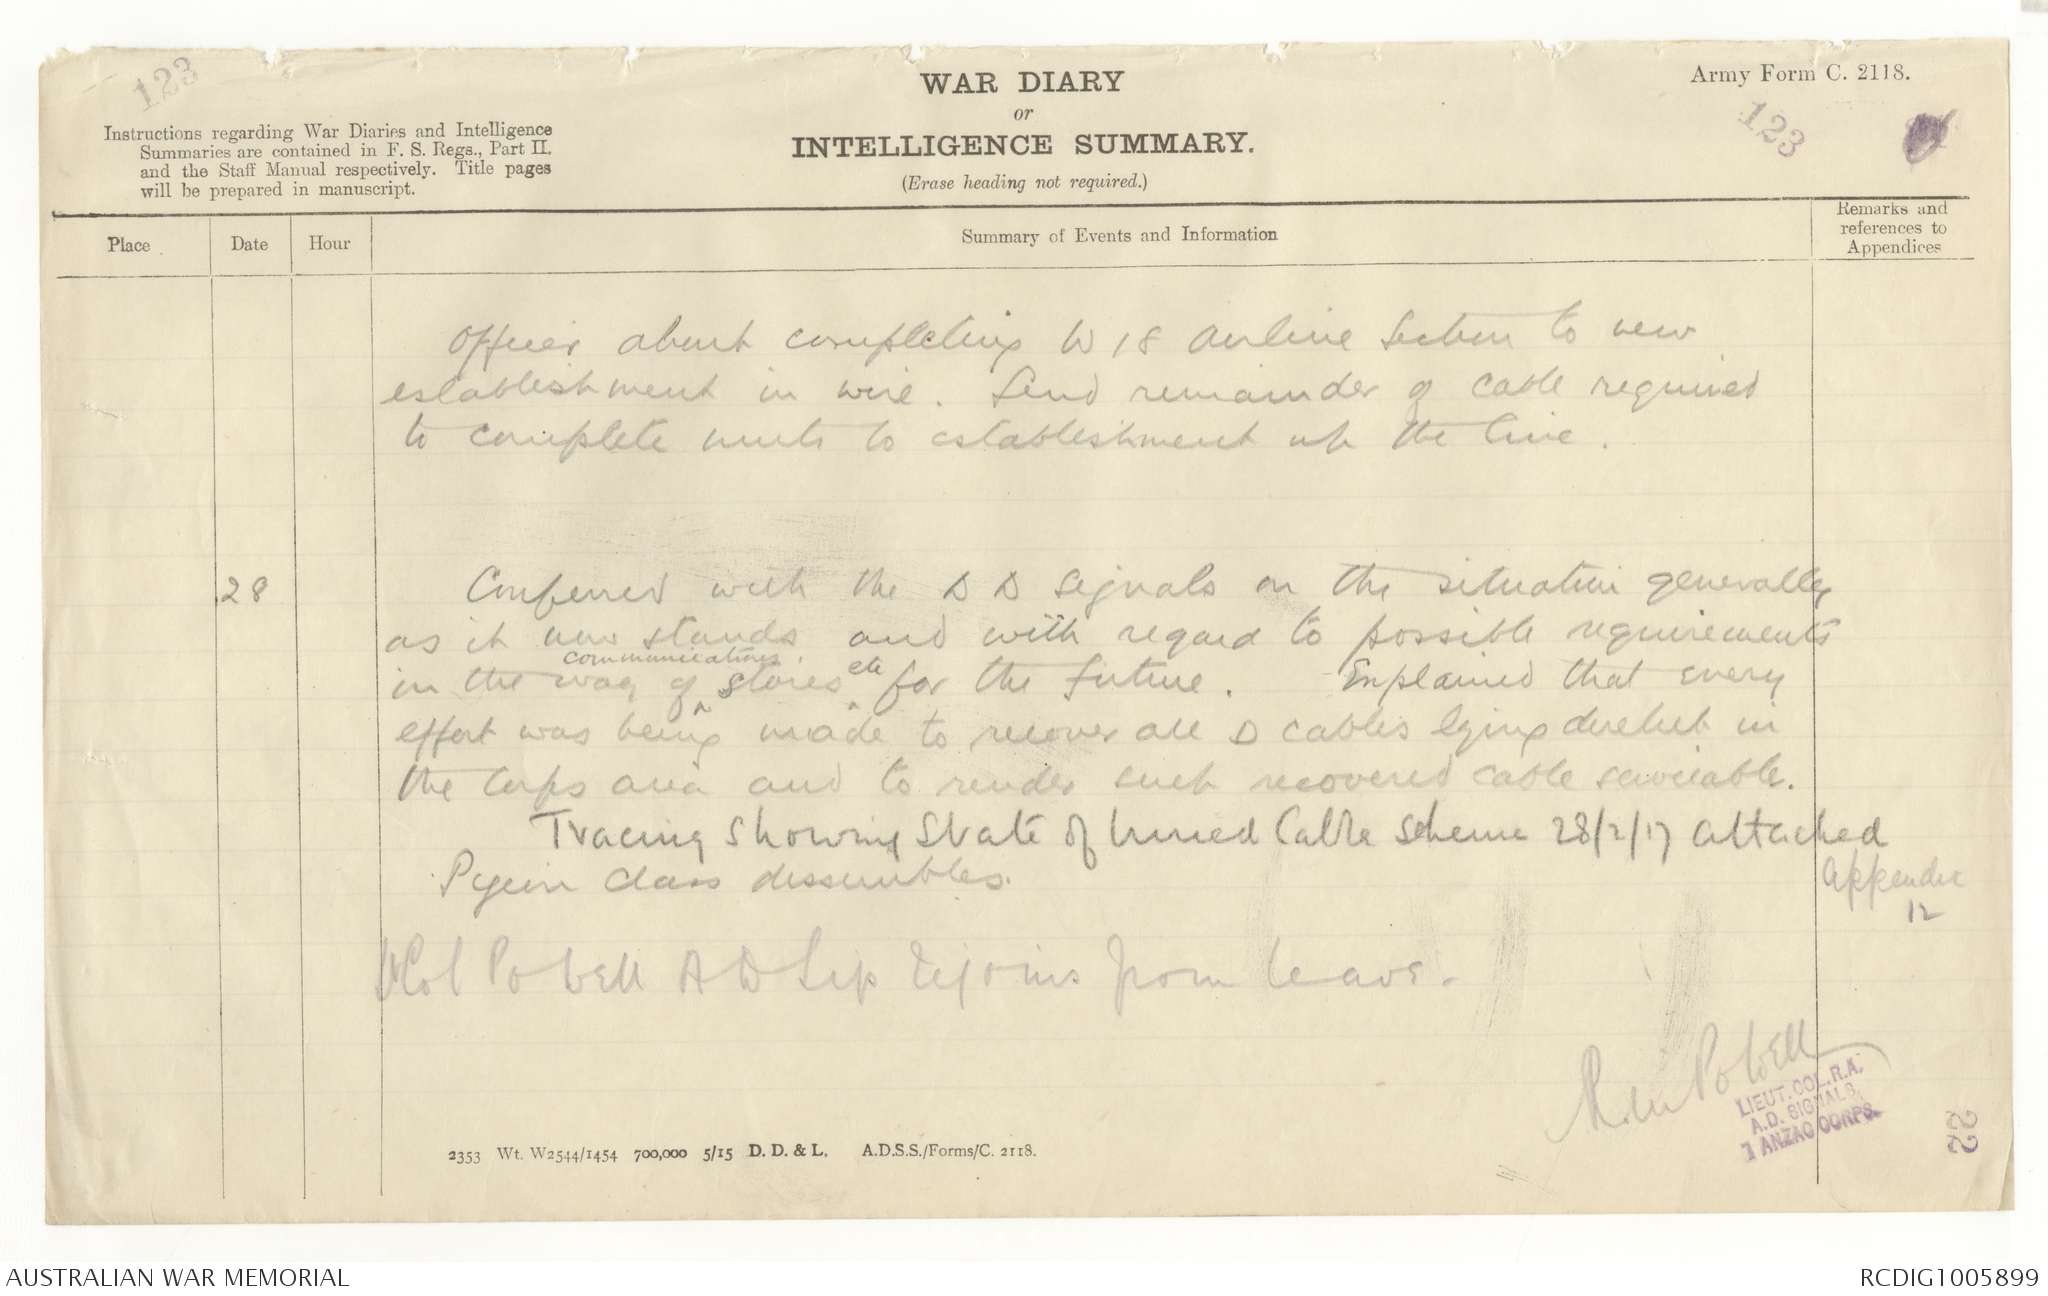 123
WAR DIARY
or
INTELLIGENCE SUMMARY.
(Erase heading not required.)
Army Form C. 2118.
123
Instructions regarding War Diaries and Intelligence
Summaries are contained in F. S. Regs., Part II.
and the Staff Manual respectively. Title pages
will be prepared in manuscript.
Place
Date
Hour
Summary of Events and Information
Remarks and
references to
Appendices
Officer about completing W 18 Airline Section to new
establishment in wire. Send remainder of cable required
to complete units to establishment up the line.
28
Conferred with the D D Signals on the situation generally
as it now stands and with regard to possible requirements
communications.
etc
in the way of stores for the future. Explained that every
effort was being made to recover all D cables lying derelict in
the Corps area and to render such recovered cable serviceable.
Tracing showing state of buried Cable Scheme 28/2/17 attached
Pigeon Class dissembles.
Appendix
12
Col Powell AD Sig rejoins from leave.
Powell
LIEUT. COL. R.A.
A.D. SIGNALS,
1 ANZAC CORPS.
22
2353 Wt. W2544/1454 700,000 5/15 D. D. & L. A.D.S.S./Forms/C. 2118.
AUSTRALIAN WAR MEMORIAL
RCDIG1005899